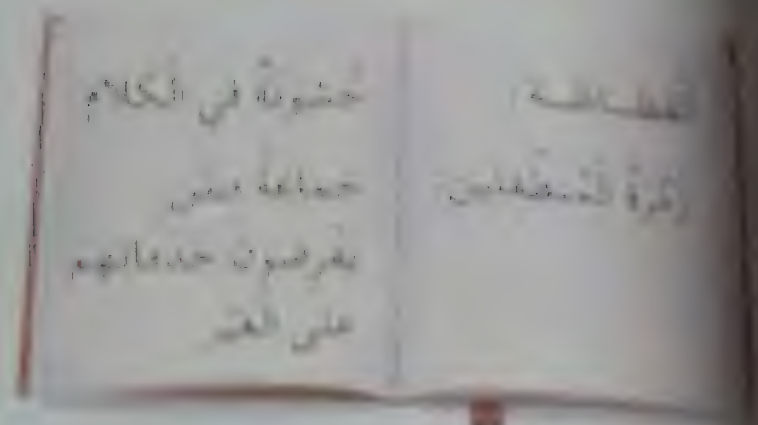 الفظاظة:
زمرة المتطفلين:
خشونة في الكلام
جماعة ممن
يفرضون خدماتهم
على الغير